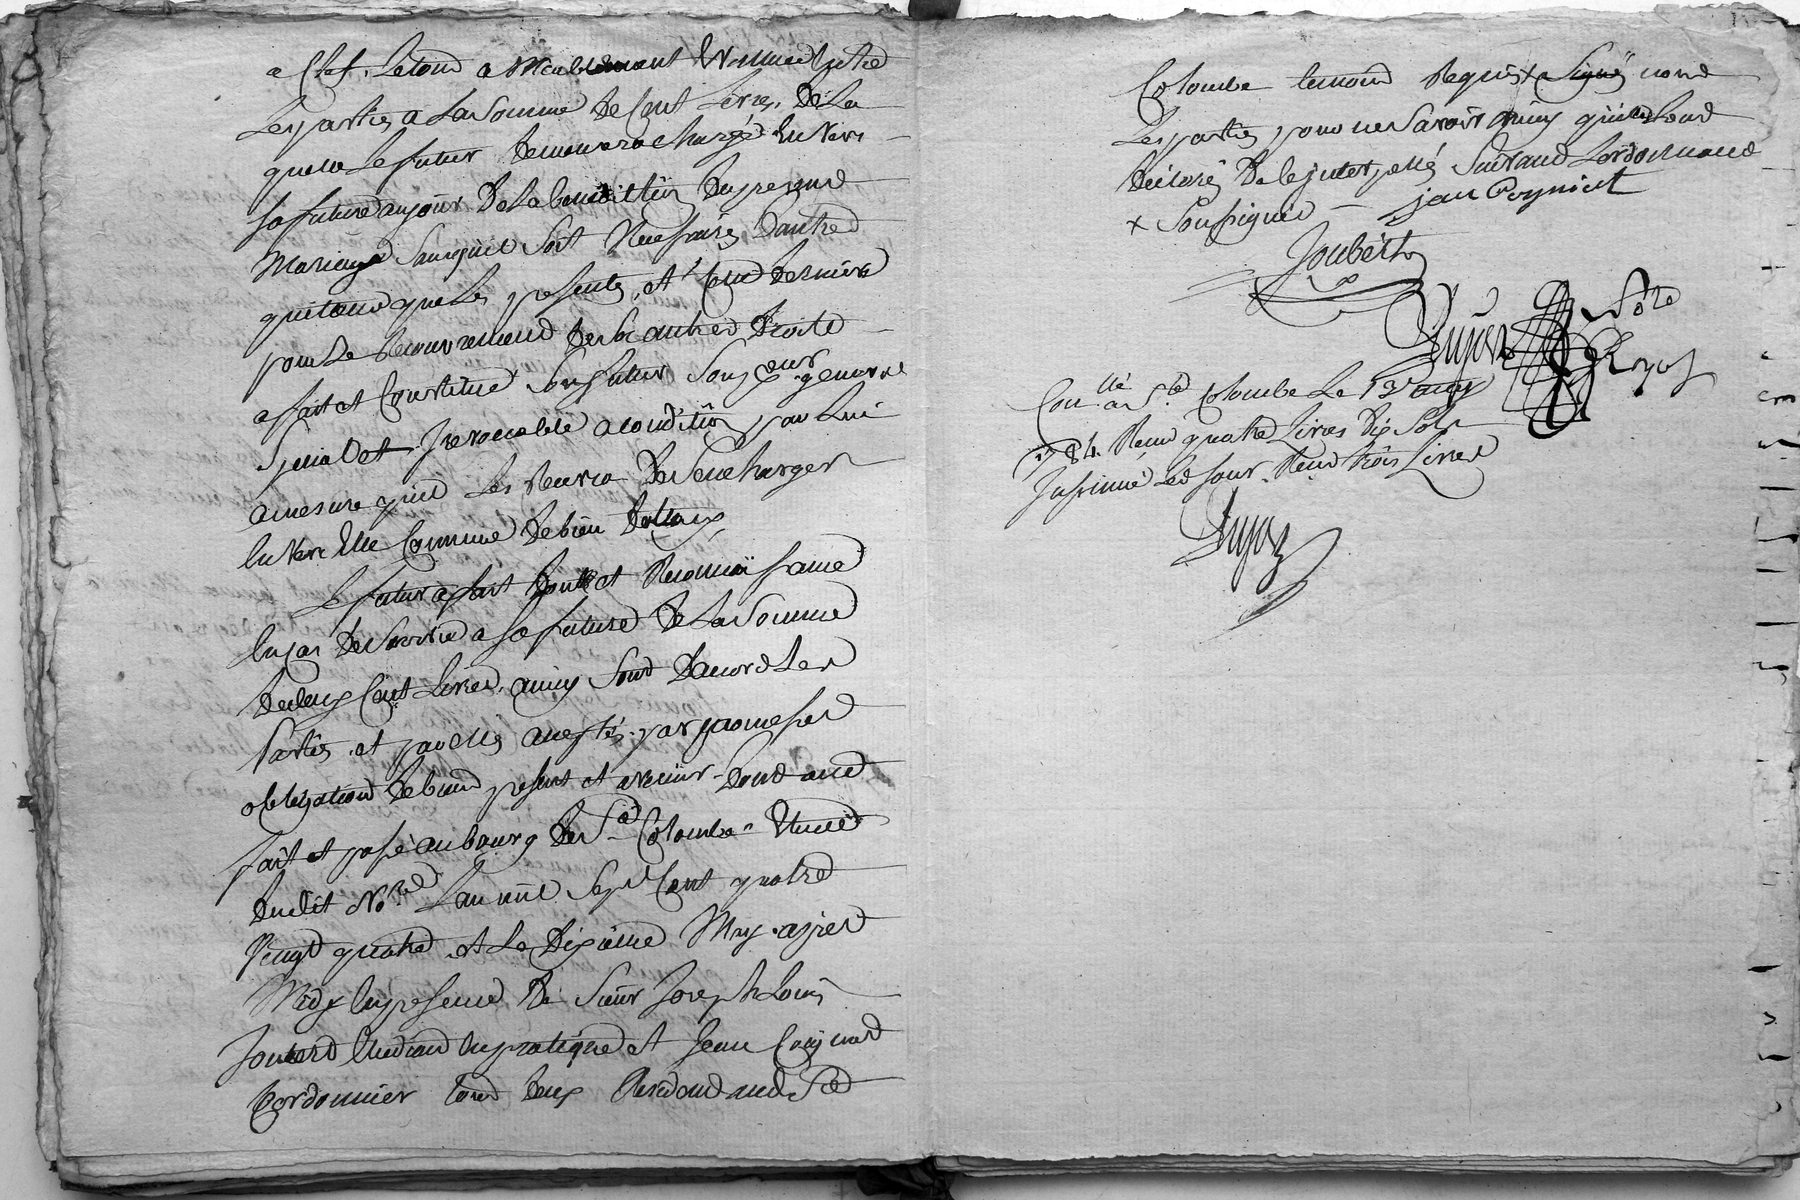 a Clef. Le tout a Meublement Evalué entre
Les parties a La Somme de Cent Livres. De La
quelle Le futur demeurera chargé Envers
Sa future au jour de La benediction du present
Mariage Sans quil Soit Necessaire dautre
quitance que Les presentes, et Cette derniere
pour Le Recouvrement de Ses autres droits
a fait et Constitué Son futur Son pcur general
Special et Irrevocable a condition par Lui
a mesure quil Les Recevra de Sen charger
Envers Elle Comme de bien dotaux
Le futur a fait dont et Recomii
de Survie a Sa future de La Somme
de deux Cent Livres. ainsy Sont daccord Les
Parties. et par elles accepté. par promesses
obligation de biens present et avenir. dont acte
fait et passé au bourg de Ste Colombe. Etude
dudit Nore. Lan mil Sept Cent quatre
Vingt quatre et Le Dixieme May. apres
Midy En presence de Sieur Joseph Louis
Joubert Etudiant En pratique et Jean Coignet
Cordonnier tous deux Residants aud Ste
Colombe temoins Requis x Signés non
Les parties pour ne Savoir ainsy quils ont
declaré de ce interpellés Suivant Lordonnance
x Soussignés — jean Coignet
Joubert
Dujas Nore Royal
Conllé a Ste Colombe Le 13 may
1784. Recu quatre Livres Dix Sols
Insinué Led Jour. Recu trois Livres
Dujas